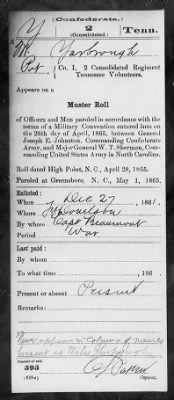 (Confederate.)
Y 2 Tenn.
(Consolidated)
M. Yarbrough
Pvt, Co. I, 2 Consolidated Regiment
Tennessee Volunteers.
Appears on a
Muster Roll
of Officers and Men paroled in accordance with the
terms of a Military Convention entered into on
the 26th day of April, 1865, between General
Joseph E. Johnston, Commanding Confederate
Army, and Major General W. T. Sherman, Com-
manding United States Army in North Carolina.
Roll dated High Point, N. C., April 28, 1865.
Paroled at Greensboro, N. C., May 1, 1865.
Enlisted:
When Dec 27, 1861.
Where Ft Donelson
By whom Capt Beaumont
Period War
Last paid:
By whom
To what time , 186 .
Present or absent Present
Remarks:
Name appears in column of names
present as
Book mark:
593
(639a)
Copyist.